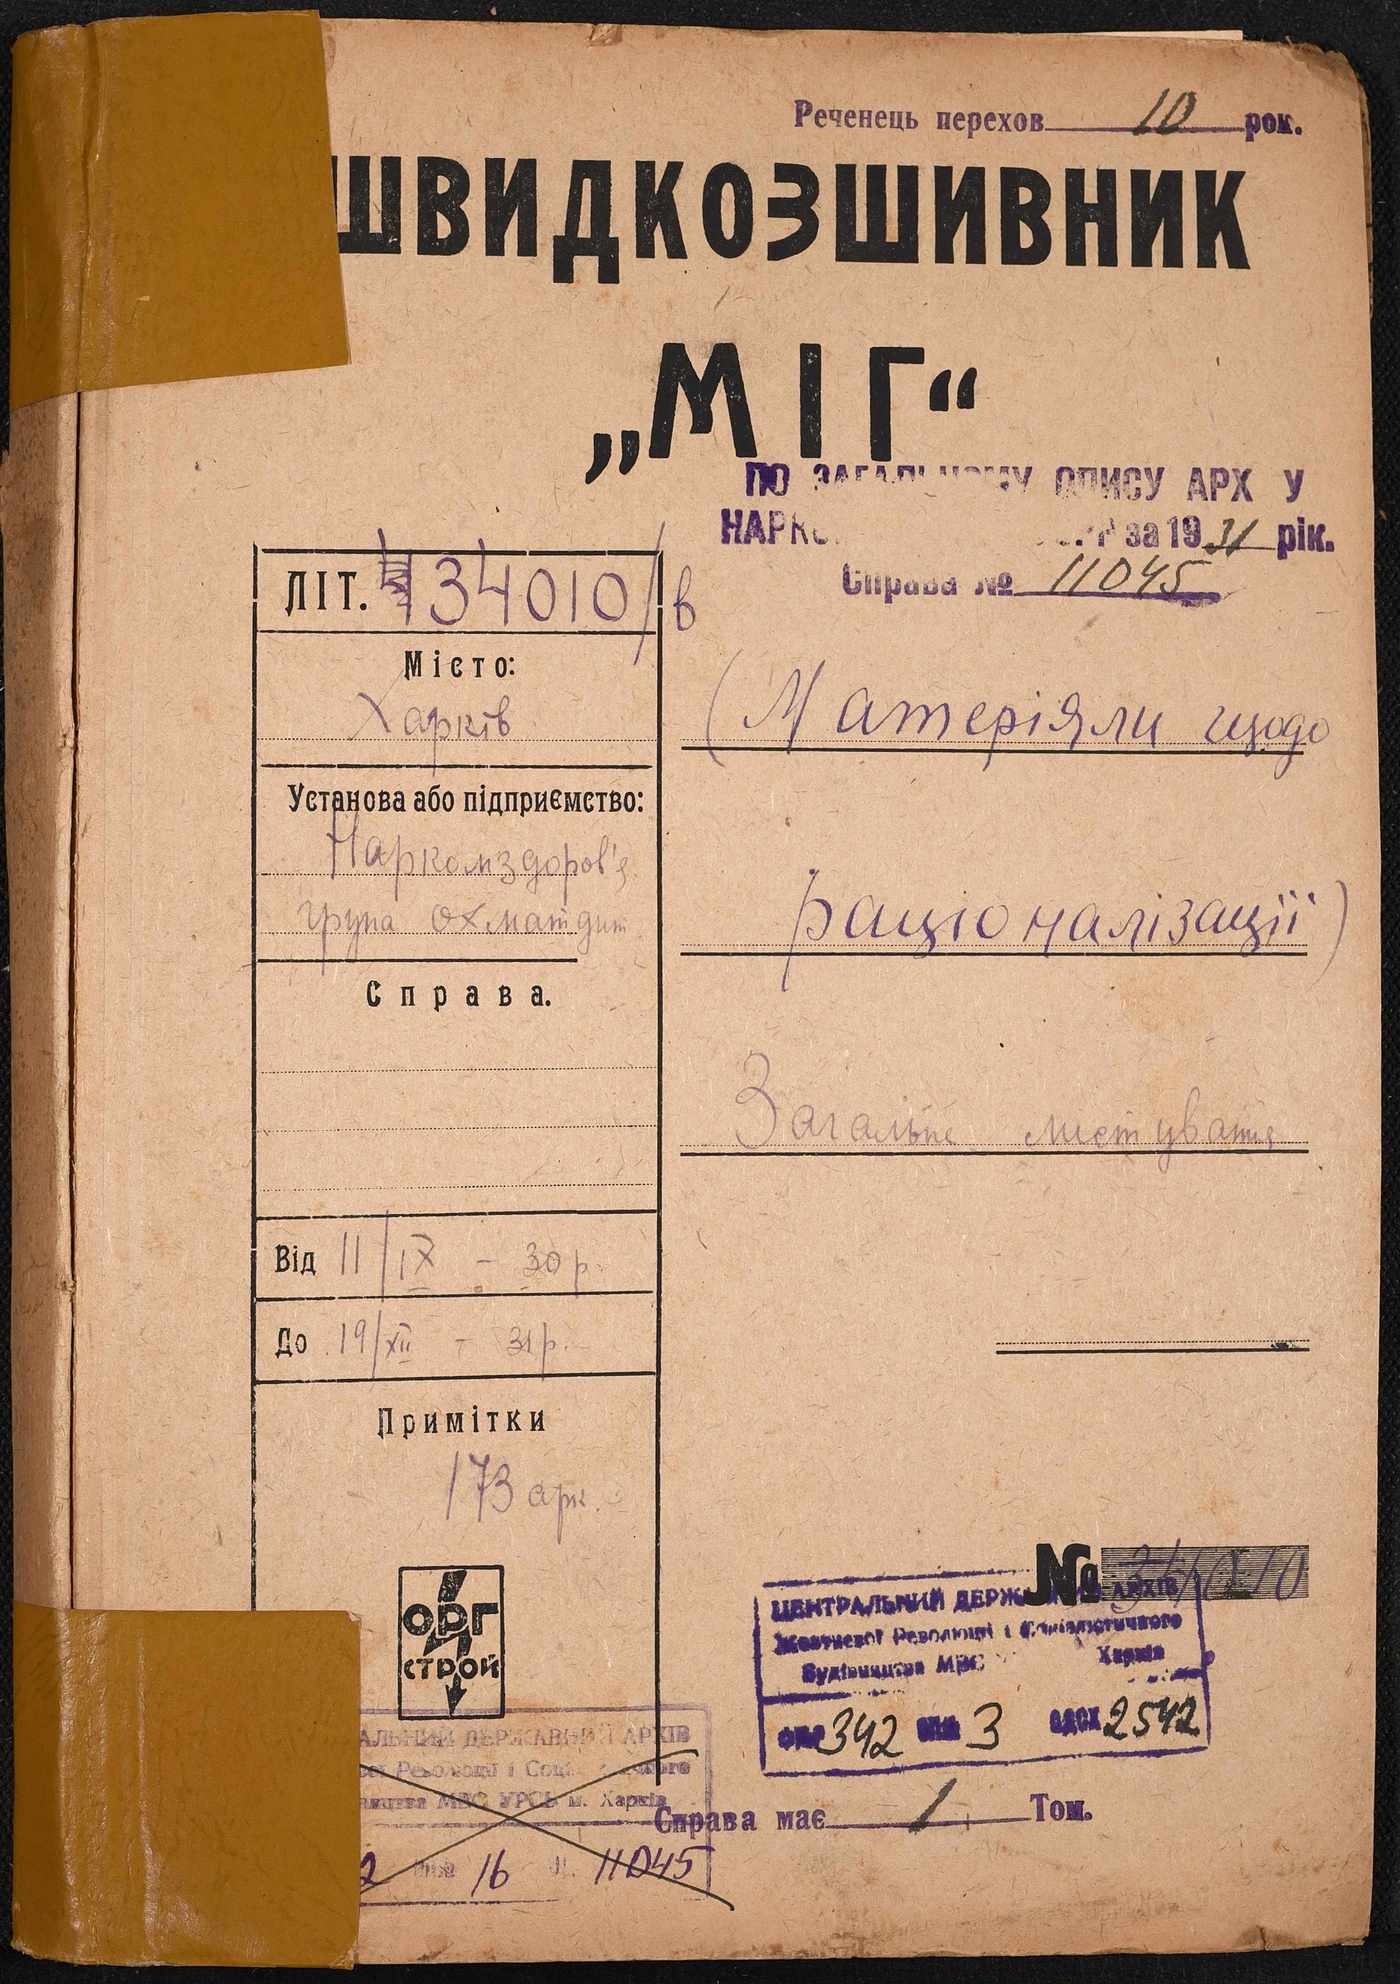 Реченець перехов 10 рок.
ШВИДКОЗШИВНИК
„МІГ“
ПО ЗАГАЛЬНОМУ ОПИСУ АРХ У
за 1931 рік.
Справа № 11045
ЛІТ. 34010/в
Місто:
Харків
Установа або підприємство:
Наркомздоров'я
група охматдит
Справа.
(Матеріяли щодо
раціоналізації)
Загальне листування
Від 11/IX - 30 р.
До 19/XII - 31 р.
Примітки
173 арк.
ОРГ
СТРОЙ
№ 34010
ЦЕНТРАЛЬНИЙ ДЕРЖ АРХІВ
Жовтневої Революції і Соціалістичного
Будівництва МВС Харків
ФОНД 342 ОПИС 3 ОДСХ 2542
АЛЬНИЙ ДЕРЖАВНИЙ АРХІВ
Революції і Соці ного
МВС УРСР м. Харків
2 16 11045
Справа має 1 Том.